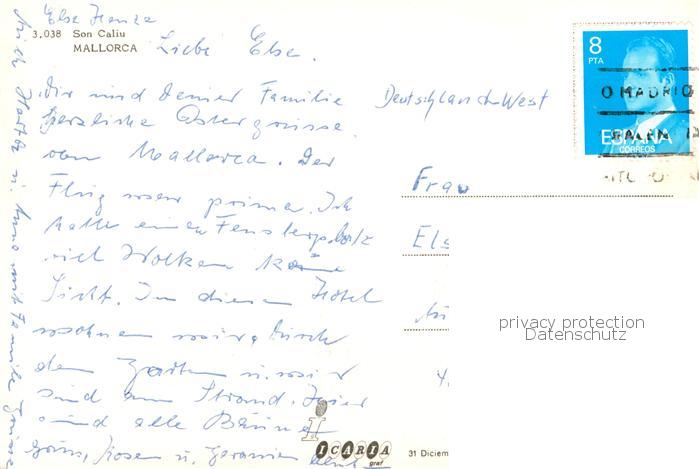 Else Franza
3.038 Son Caliu
MALLORCA
Liebe Else.
Dir und Deiner Familie
herzliche Ostergrüsse
von Mallorca. Der
Flug war prima. Ich
hatte einen Fensterplatz
viel Wolken keine
Sicht. In diesem Hotel
wohnen wir, durch
den Garten u. wir
sind am Strand. Hier
sind alle Bäume
grün, Rosen u. Geranien
Deutschland-West
8
PTA
ESPAÑA
CORREOS
O MADRID
Frau
Els
privacy protection
Datenschutz
ICARIA
graf
31 Diciem